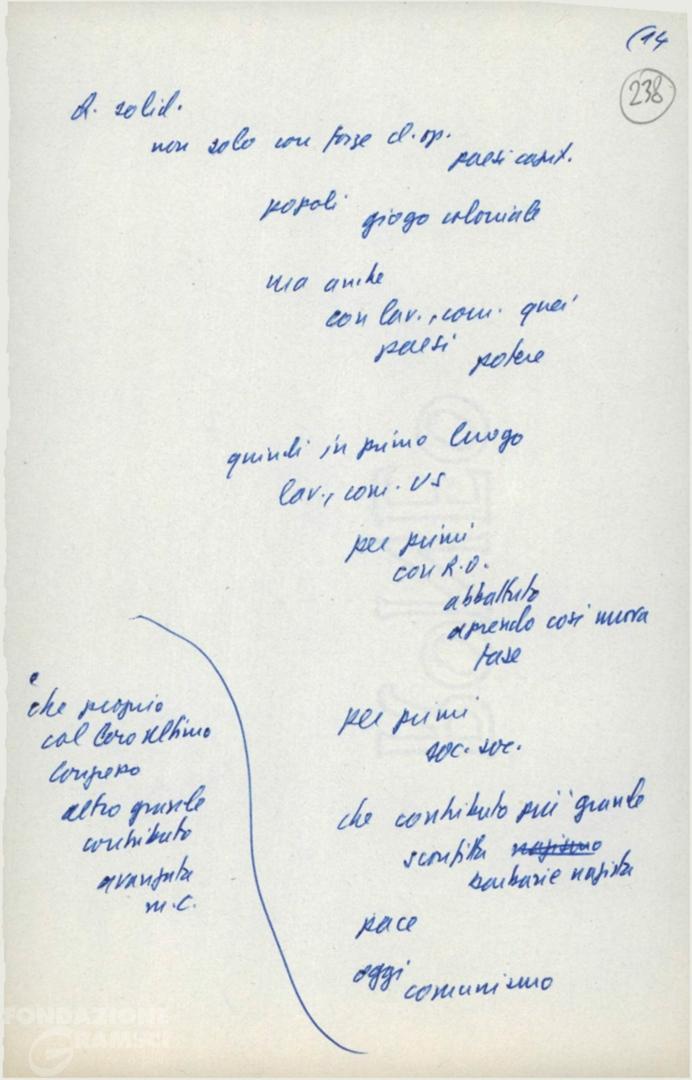 (14
238
R. solid.
non solo con forze d. op.
paesi capit.
popoli
giogo coloniale
ma anche
con lav., com. quei
paesi
potere
quindi in primo luogo
lav., com. US
per primi
con R.O.
abbattuto
aprendo così nuova
fase
per primi
soc. soc.
che contributo più grande
sconfitta nazismo
barbarie nazista
pace
oggi
comunismo
e
che proprio
col loro ultimo
Congresso
altro grande
contributo
avanzata
m.c.
FONDAZIONE
GRAMSCI